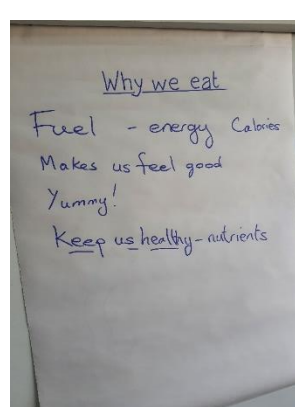 Why we eat
Fuel - energy Calories
Makes us feel good
Yummy!
Keep us healthy - nutrients